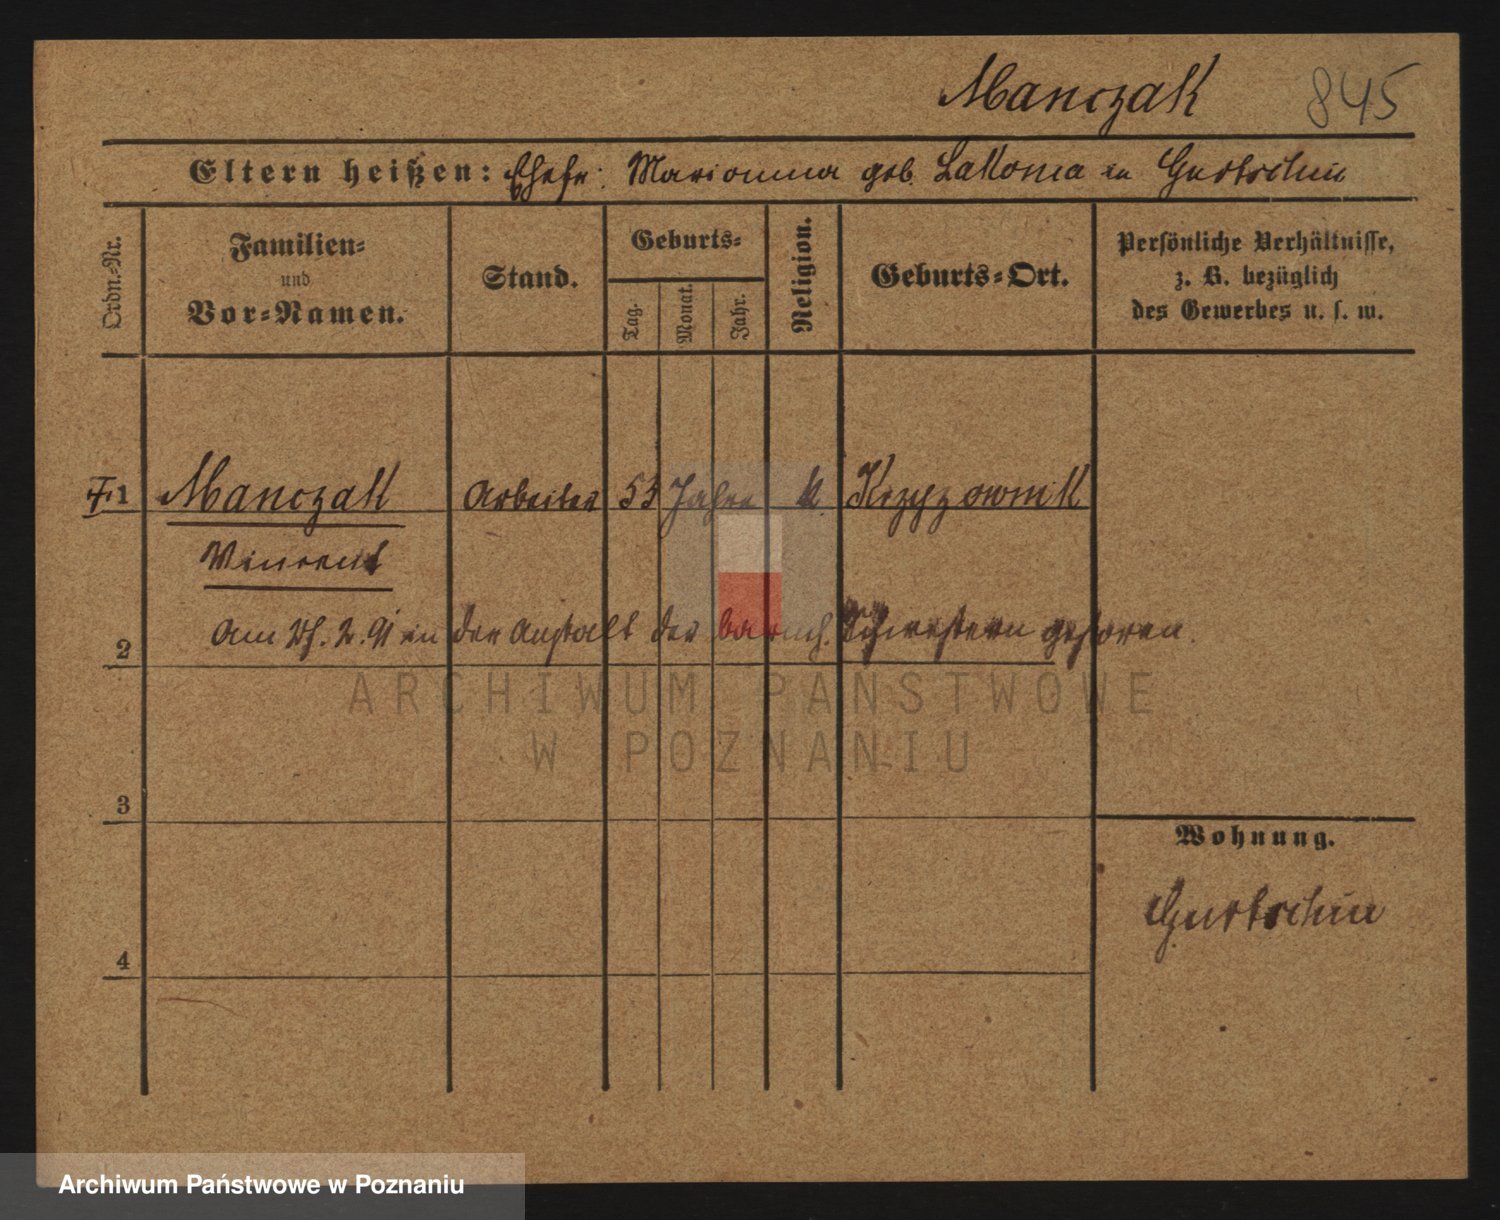 Manczak 845
Eltern heißen: Ehefr: Marianna geb. Lakoma in Gurtschin
Ordn.-Nr.
Familien-
und
Vor-Namen.
Stand.
Geburts-
Tag.
Monat.
Jahr.
Religion.
Geburts-Ort.
Persönliche Verhältnisse,
z. B. bezüglich
des Gewerbes u. s. w.
1 Manczak Arbeiter 53 Jahre k. Krzyzownik
Vincent
Am 2. 91 in der Anstalt der barmh. Schwestern gestorben.
2
ARCHIWUM PAŃSTWOWE
W POZNANIU
3
Wohnung.
Gurtschin
4
Archiwum Państwowe w Poznaniu